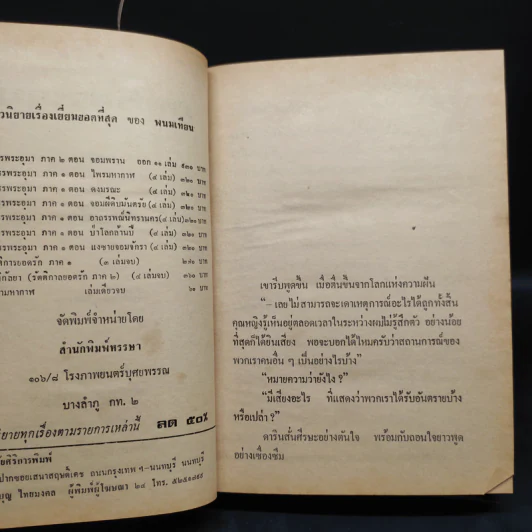 วนิยายเรื่องเยี่ยมยอดที่สุด ของ พนมเทียน
รพระอุมา ภาค ๒ ตอน จอมพราน ออก ๑๑ เล่ม ๕๓๐ บาท
รพระอุมา ภาค ๑ ตอน ไพรมหากาฬ (๔ เล่ม) ๓๒๐ บาท
รพระอุมา ภาค ๑ ตอน ดงมรณะ (๔ เล่ม) ๓๒๐ บาท
รพระอุมา ภาค ๑ ตอน จอมผีดิบมันตรัย (๔ เล่ม) ๓๒๐ บาท
รพระอุมา ภาค ๑ ตอน อาถรรพณ์นิทรานคร (๔ เล่ม) ๓๒๐ บาท
รพระอุมา ภาค ๑ ตอน ป่าโลกล้านปี (๔ เล่ม) ๓๒๐ บาท
รพระอุมา ภาค ๑ ตอน แงซายจอมจักรา (๔ เล่ม) ๓๒๐ บาท
ติการยอดรัก ภาค ๑ (๓ เล่มจบ) บาท
กัลยา (รัตติกาลยอดรัก ภาค ๒) (๔ เล่มจบ) ๓๖๐ บาท
รามหากาฬ เล่มเดียวจบ ๖๐ บาท
จัดพิมพ์จำหน่ายโดย
สำนักพิมพ์พรรษา
๑๐๖/๘ โรงภาพยนตร์บุศยพรรณ
บางลำภู กท. ๒
ยายทุกเรื่องตามรายการเหล่านี้ ลด ๕๐%
ยศิริการพิมพ์
ปากซอยเสนาสฤษดิ์เดช ถนนกรุงเทพ ฯ-นนทบุรี นนทบุรี
บุญ ไทยมงคล ผู้พิมพ์ผู้โฆษณา ๒๔ โทร.
เขารีบพูดขึ้น เมื่อตื่นขึ้นจากโลกแห่งความฝัน
“—เลยไม่สามารถจะเดาเหตุการณ์อะไรได้ถูกทั้งสิ้น
คุณหญิงรู้เห็นอยู่ตลอดเวลาในระหว่างผมไม่รู้สึกตัว อย่างน้อย
ที่สุดก็ได้ยินเสียง พอจะบอกได้ไหมครับว่าสถานการณ์ของ
พวกเราคนอื่น ๆ เป็นอย่างไรบ้าง”
“หมายความว่ายังไง?”
“มีเสียงอะไร ที่แสดงว่าพวกเราได้รับอันตรายบ้าง
หรือเปล่า?”
ดารินสั่นศีรษะอย่างตันใจ พร้อมกับถอนใจยาวพูด
อย่างเชื่องซึม